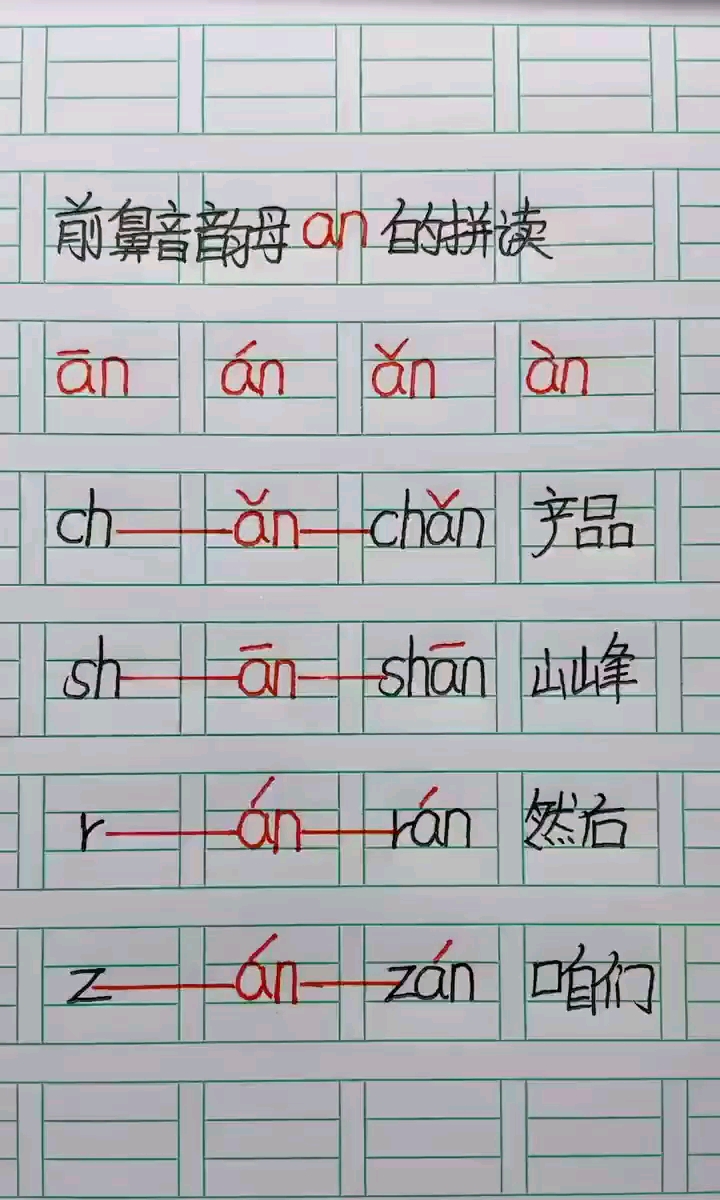 前鼻音韵母an的拼读
ān án ǎn àn
ch——ǎn——chǎn 产品
sh——ān——shān 山峰
r——án——rán 然后
z——án——zán 咱们